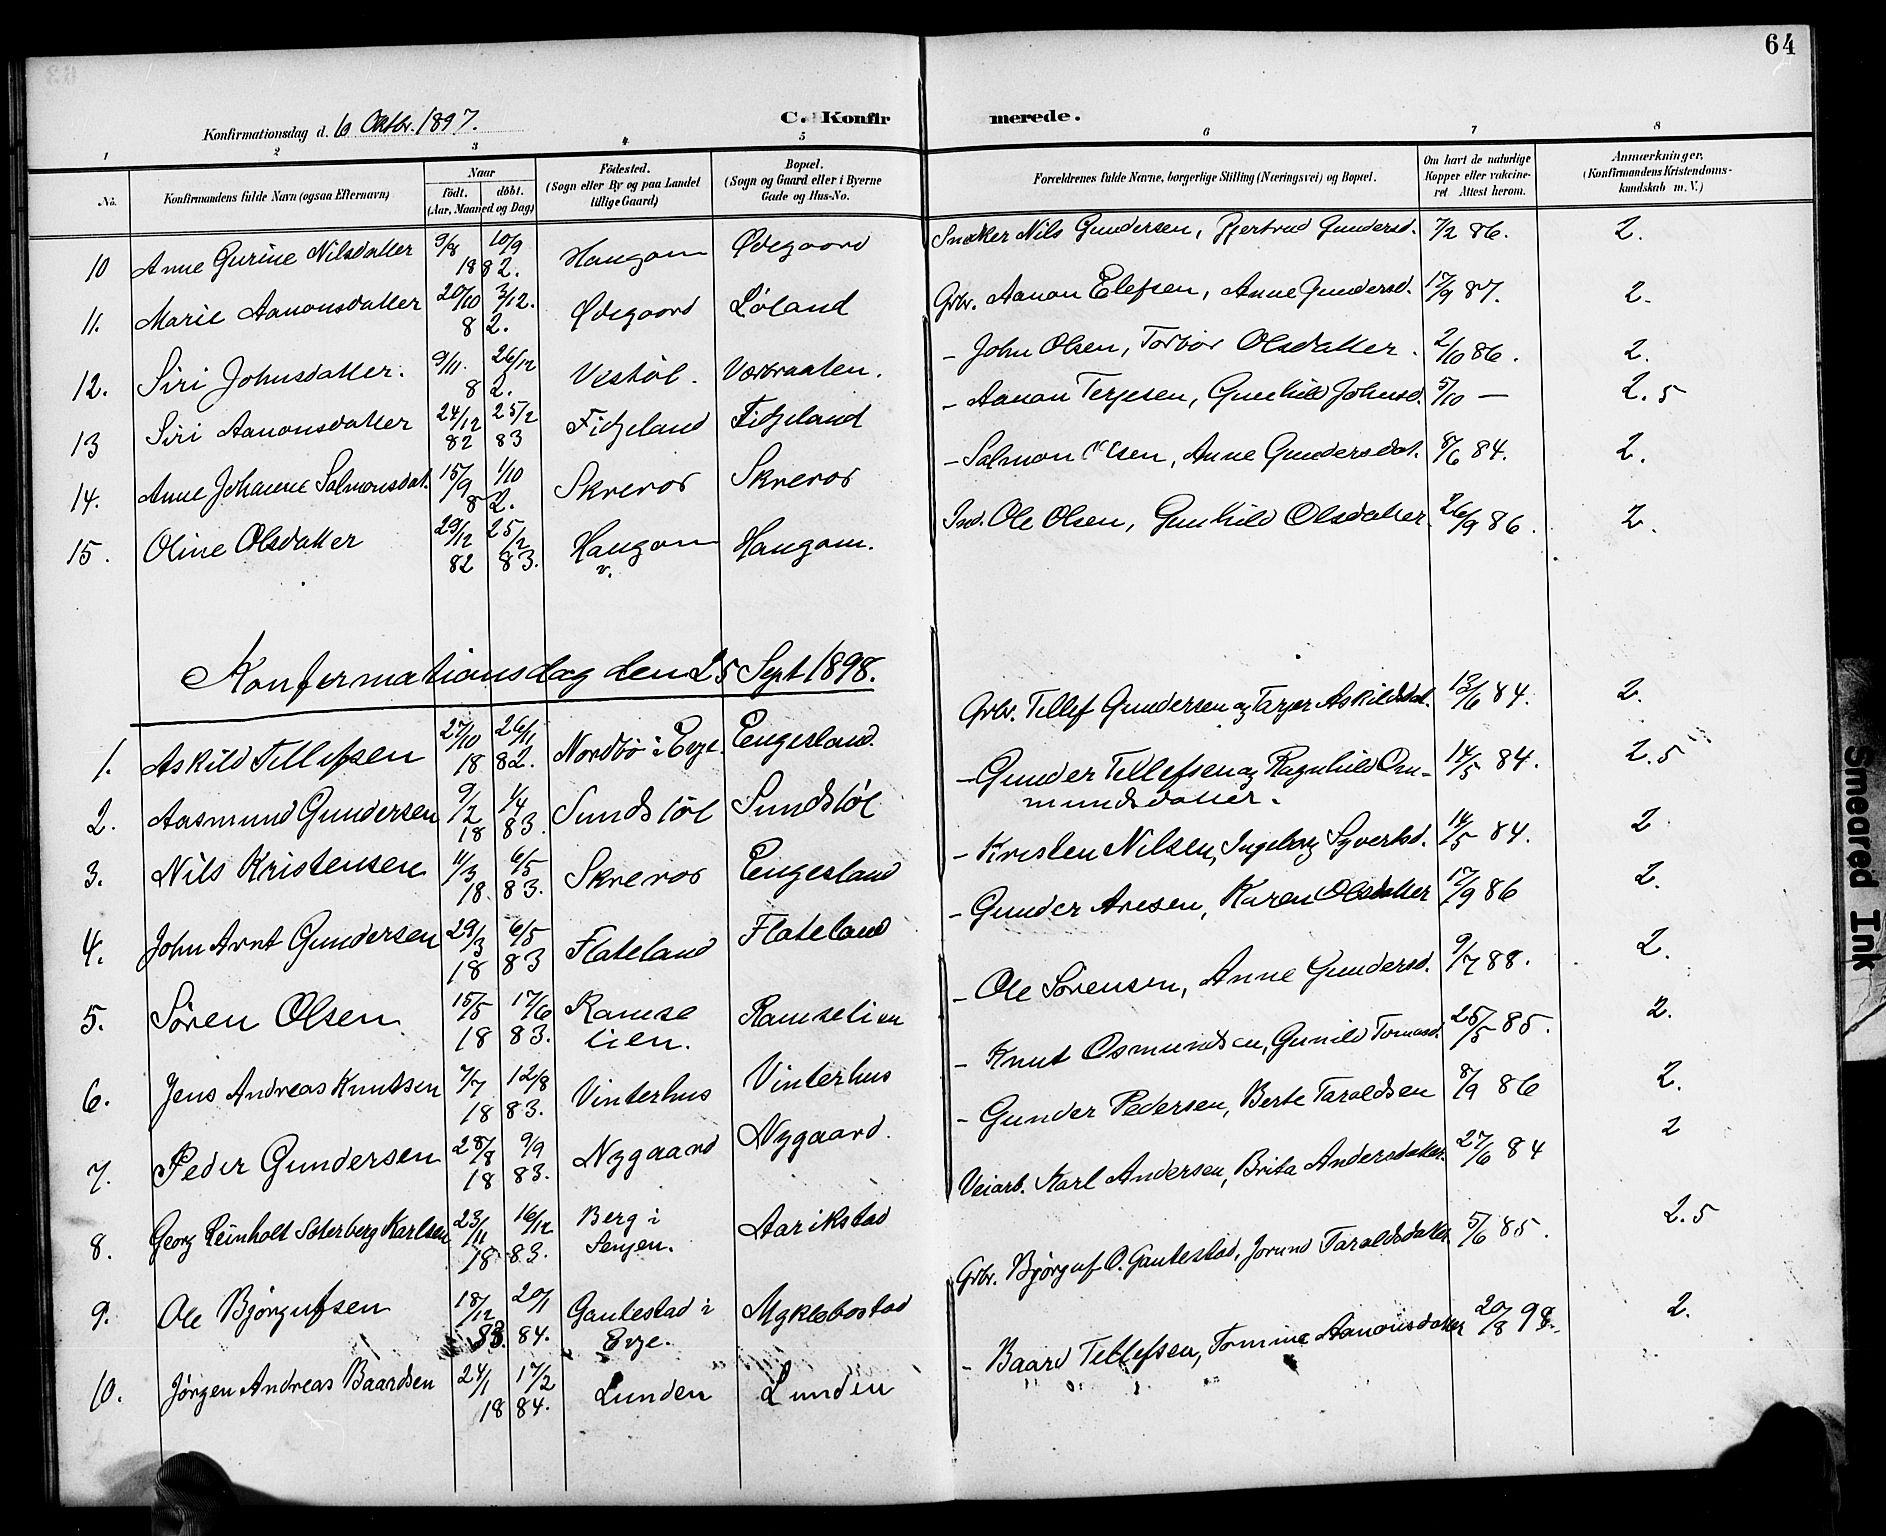 64
Konfirmationsdag d. 6 Oktbr. 1897.
C. Konfirmerede.
1 2 3 4 5 6 7 8
No. Konfirmandens fulde Navn (ogsaa Efternavn) Naar født. døbt. (Aar, Maaned og Dag) Fødested. (Sogn eller By og paa Landet tillige Gaard) Bopæl. (Sogn og Gaard eller i Byerne Gade og Hus-No. Forældrenes fulde Navne, borgerlige Stilling (Næringsvei) og Bopæl. Om havt de naturlige Kopper eller vakcineret Attest herom. Anmærkninger. (Konfirmandens Kristendomskundskab m. V.)
10 Anne Gurine Nilsdatter 9/8 10/9 1882. Haugom Ødegaard Snæker Nils Gundersen, Gjertrud Gundersd. 7/2 86. 2.
11. Marie Aanonsdatter 20/10 3/12. 82. Ødegaard Løland Grbr. Aanon Elefsen, Anne Gundersd. 17/9 87. 2.
12. Siri Johnsdatter. 9/11. 26/12 82. Vestøl. Værbraaten. - John Olsen, Torbør Olsdatter. 2/10 86. 2.
13 Siri Aanonsdatter 24/12 82 25/2 83 Fidjeland Fidjeland - Aanon Terjesen, Gunhild Johnsd. 5/10 — 2.5
14. Anne Johanne Salmonsdat. 15/9 1/10 82. Skreros Skreros - Salmon Olsen, Anne Gundersdat. 8/6 84. 2.
15. Oline Olsdatter 29/12 82 25/2 83. Haugom v. Haugom. Ind. Ole Olsen, Gunhild Olsdatter 26/9 86. 2.
Konfermationsdag den 25 Sept 1898.
1. Askild Tellefsen 27/10 26/11 1882. Nordbø i Evje. Engesland. Grbr. Tellef Gundersen og Tarjer Askildsdat. 13/6 84. 2.
2. Aasmund Gundersen 9/2 1/4 1883. Sundstøl Sundstøl - Gunder Tellefsen og Ragnhild Osmundsdatter. 14/5 84. 2.5
3. Nils Kristensen 11/3 6/5 1883. Skreros Engesland - Kristen Nilsen, Ingeborg Syvertsd. 14/5 84. 2
4. John Arnt Gundersen 29/3 6/5 1883 Flateland Flateland - Gunder Aresen, Karen Olsdatter 17/9 86 2.
5. Søren Olsen 15/5 17/6 1883. Ramselien. Ramselien - Ole Sørensen, Anne Gundersd. 9/7 88. 2.
6. Jens Andreas Knutsen 7/7 12/8 1883. Vinterhus Vinterhus - Knut Osmundsen, Gunild Tomasd. 25/5 85. 2.
7. Peder Gundersen 28/8 9/9 1883. Nygaard Nygaard. - Gunder Pedersen, Berte Taraldsen 8/9 86 2.
8. Georg Reinholt Sæterberg Karlsen 23/11 16/12 1883. Berg i Senjen. Aarikstad Veiarb. Karl Andersen, Brita Andersdatter. 27/6 84 2
9. Ole Bjørgufsen 18/12 83. 20/1 84. Gautestad i Evje. Myklebostad Grbr. Bjørguf O. Gautestad, Jorund Taraldsdatter. 5/6 85. 2.5
10. Jørgen Andreas Baardsen 24/1 17/2 1884. Lunden Lunden - Baard Tellefsen, Tomine Aanonsdatter 20/8 98. 2.
Smeared Ink